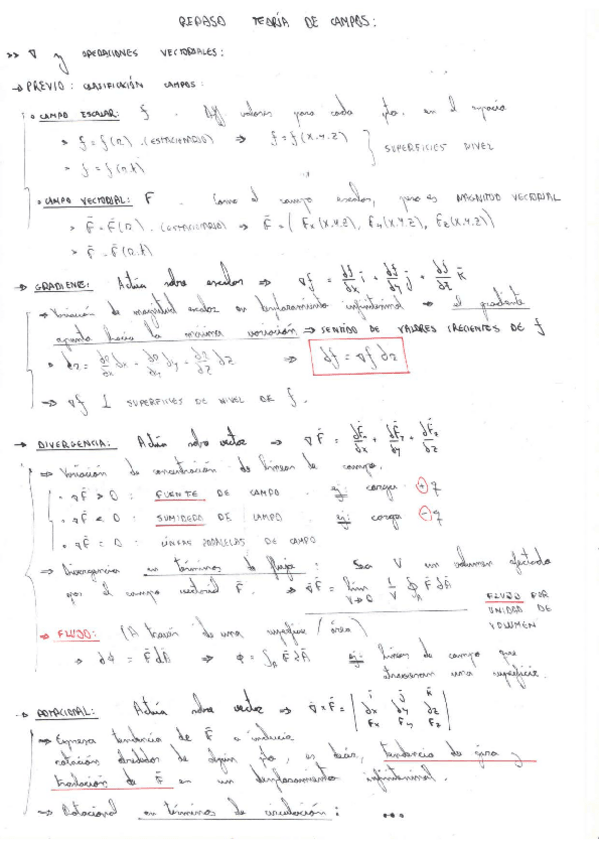 REPASO TEORÍA DE CAMPOS:
>> ∇ y OPERACIONES VECTORIALES:
→ PREVIO: CLASIFICACIÓN CAMPOS:
• CAMPO ESCALAR: f . Diff valores para cada pto. en el espacio
> f = f(r) . (ESTACIONARIO) ⇒ f = f(x,y,z)
> f = f(r,t)
} SUPERFICIES NIVEL
• CAMPO VECTORIAL: F . Como el campo escalar, pero es MAGNITUD VECTORIAL
> F̄ = F̄(r) . (ESTACIONARIO) ⇒ F̄ = (Fx(x,y,z), Fy(x,y,z), Fz(x,y,z))
> F̄ = F̄(r,t)
→ GRADIENTE: Actúa sobre escalar ⇒ ∇f = ∂f/∂x i + ∂f/∂y j + ∂f/∂z k
→ Variación de magnitud escalar en desplazamiento infinitesimal → el gradiente
apunta hacia la máxima variación ⇒ SENTIDO DE VALORES CRECIENTES DE f
• dr = ∂r/∂x dx + ∂r/∂y dy + ∂r/∂z dz ⇒ df = ∇f dr
→ ∇f ⊥ SUPERFICIES DE NIVEL DE f.
→ DIVERGENCIA: Actúa sobre vector ⇒ ∇F̄ = ∂F̄x/∂x + ∂F̄y/∂y + ∂F̄z/∂z
→ Variación de concentración de líneas de campo.
• ∇F̄ > 0 : FUENTE DE CAMPO . ej: carga +q
• ∇F̄ < 0 : SUMIDERO DE CAMPO ej: carga -q
• ∇F̄ = 0 : LÍNEAS PARALELAS DE CAMPO
→ Divergencia en términos de flujo : Sea V un volumen afectado
por el campo vectorial F̄. ⇒ ∇F̄ = lim V→0 1/V ∮ F̄ dĀ
FLUJO POR
UNIDAD DE
VOLUMEN
→ FLUJO: (A través de una superficie / área)
> dΦ = F̄ dĀ ⇒ Φ = ∫A F̄ dĀ ej: líneas de campo que
atraviesan una superficie.
→ ROTACIONAL: Actúa sobre vector ⇒ ∇×F̄ = | i j k
∂x ∂y ∂z
Fx Fy Fz |
→ Expresa tendencia de F̄ a inducir
rotación alrededor de algún pto, es decir, tendencia de giro y
traslación de F̄ en un desplazamiento infinitesimal.
→ Rotacional en términos de circulación: ...